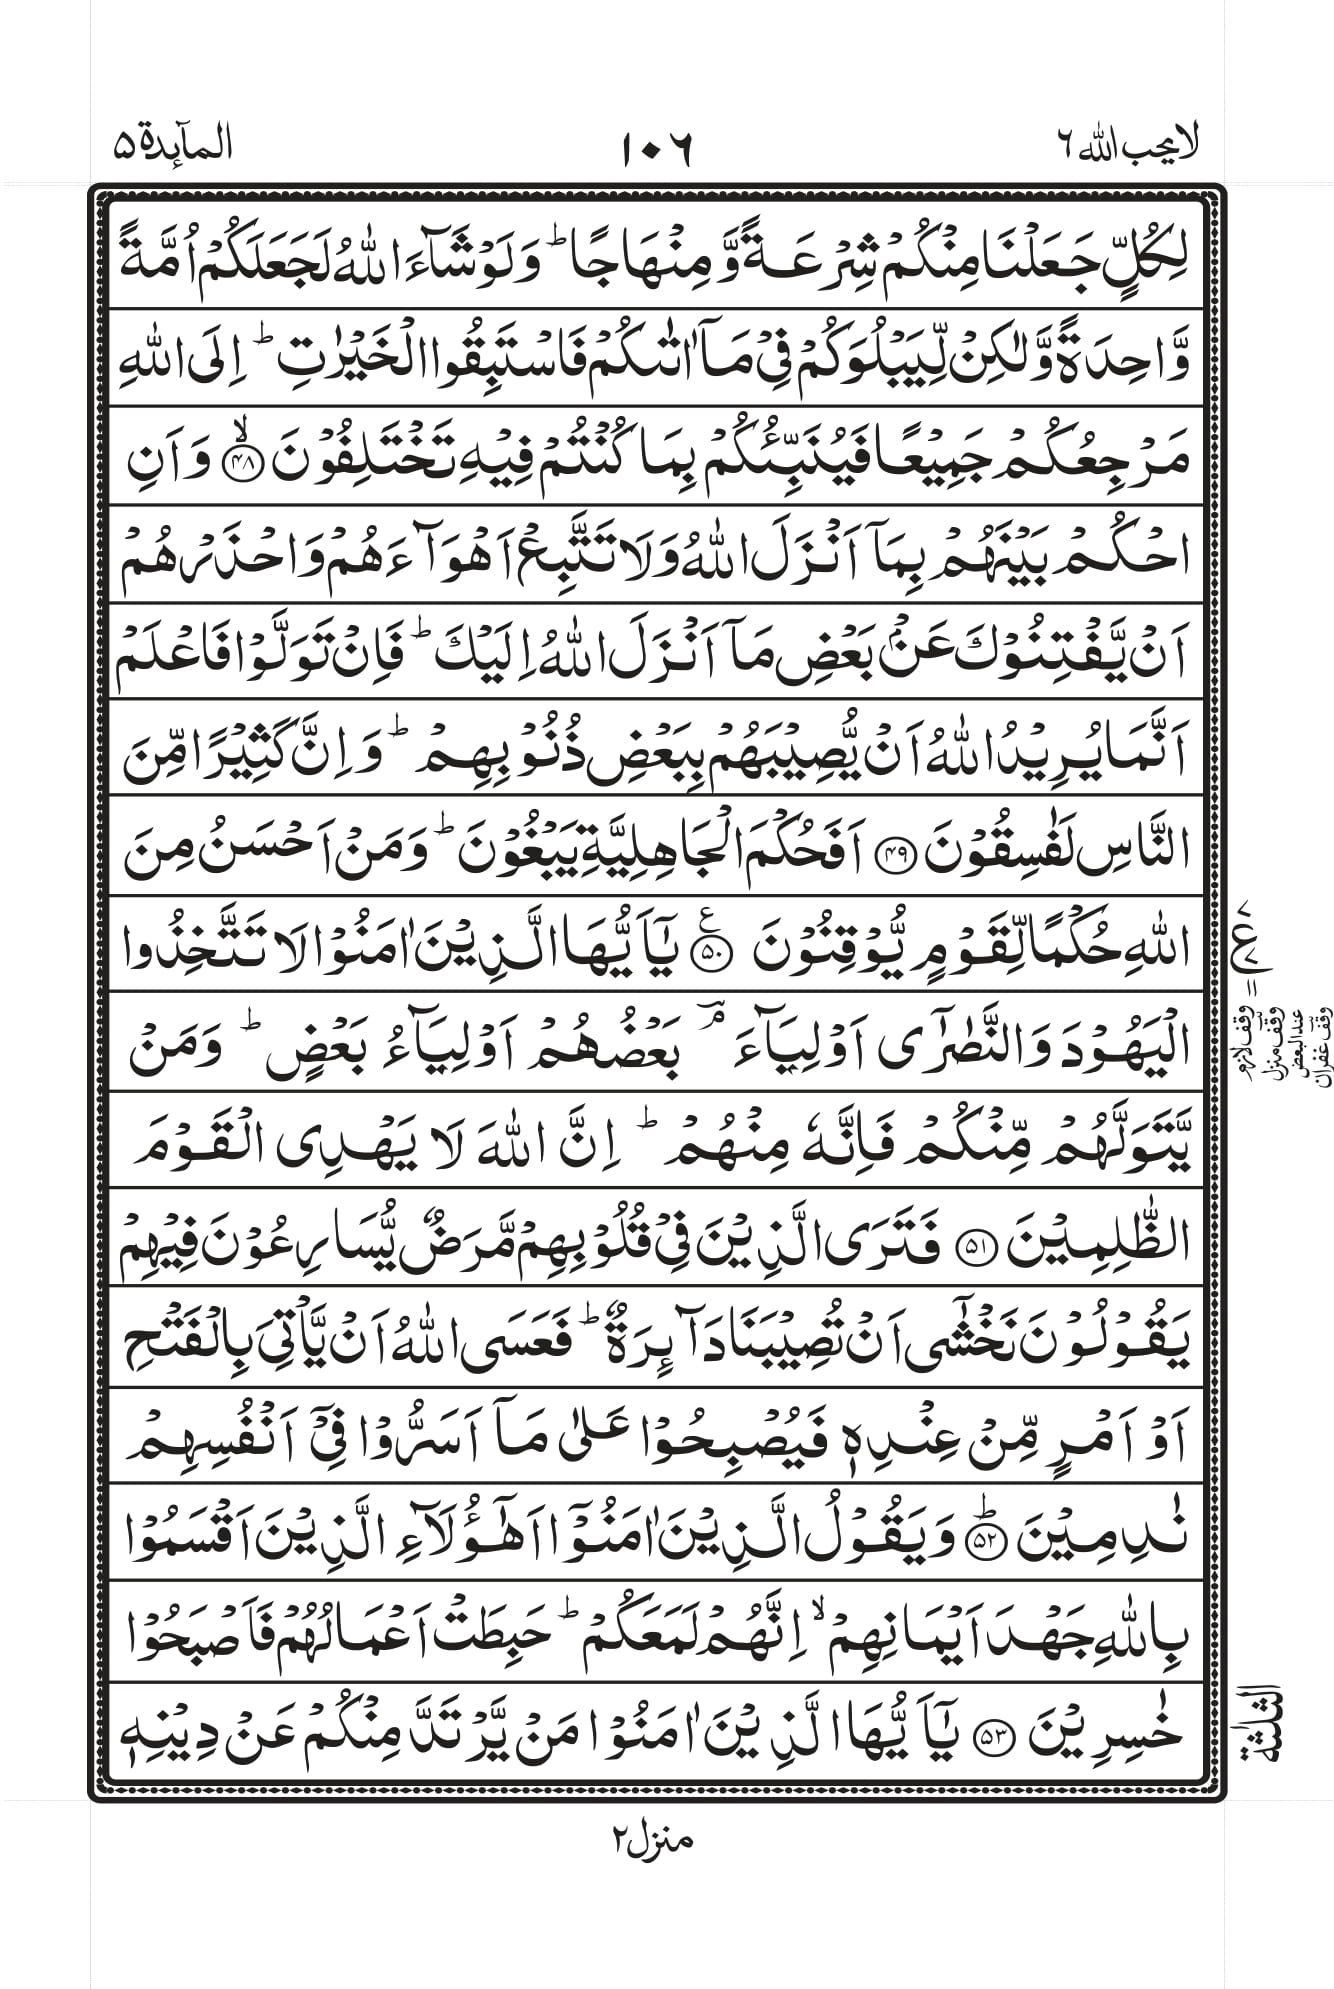 لا يحب الله ٦
١٠٦
المآىِٕدة ٥
لِكُلٍّ جَعَلْنَا مِنْكُمْ شِرْعَةً وَّ مِنْهَاجًا ؕ وَ لَوْ شَآءَ اللّٰهُ لَجَعَلَكُمْ اُمَّةً
وَّاحِدَةً وَّ لٰكِنْ لِّيَبْلُوَكُمْ فِيْ مَاۤ اٰتٰىكُمْ فَاسْتَبِقُوا الْخَيْرٰتِ ؕ اِلَى اللّٰهِ
مَرْجِعُكُمْ جَمِيْعًا فَيُنَبِّئُكُمْ بِمَا كُنْتُمْ فِيْهِ تَخْتَلِفُوْنَ ۙ﴿۴۸﴾ وَ اَنِ
احْكُمْ بَيْنَهُمْ بِمَاۤ اَنْزَلَ اللّٰهُ وَ لَا تَتَّبِعْ اَهْوَآءَهُمْ وَ احْذَرْهُمْ
اَنْ يَّفْتِنُوْكَ عَنْۢ بَعْضِ مَاۤ اَنْزَلَ اللّٰهُ اِلَيْكَ ؕ فَاِنْ تَوَلَّوْا فَاعْلَمْ
اَنَّمَا يُرِيْدُ اللّٰهُ اَنْ يُّصِيْبَهُمْ بِبَعْضِ ذُنُوْبِهِمْ ؕ وَ اِنَّ كَثِيْرًا مِّنَ
النَّاسِ لَفٰسِقُوْنَ ﴿۴۹﴾ اَفَحُكْمَ الْجَاهِلِيَّةِ يَبْغُوْنَ ؕ وَ مَنْ اَحْسَنُ مِنَ
اللّٰهِ حُكْمًا لِّقَوْمٍ يُّوْقِنُوْنَ ﴿۵۰﴾ع يٰۤاَيُّهَا الَّذِيْنَ اٰمَنُوْا لَا تَتَّخِذُوا
الْيَهُوْدَ وَ النَّصٰرٰۤى اَوْلِيَآءَ ۘؔ بَعْضُهُمْ اَوْلِيَآءُ بَعْضٍ ؕ وَ مَنْ
يَّتَوَلَّهُمْ مِّنْكُمْ فَاِنَّهٗ مِنْهُمْ ؕ اِنَّ اللّٰهَ لَا يَهْدِى الْقَوْمَ
الظّٰلِمِيْنَ ﴿۵۱﴾ فَتَرَى الَّذِيْنَ فِيْ قُلُوْبِهِمْ مَّرَضٌ يُّسَارِعُوْنَ فِيْهِمْ
يَقُوْلُوْنَ نَخْشٰۤى اَنْ تُصِيْبَنَا دَآىِٕرَةٌ ؕ فَعَسَى اللّٰهُ اَنْ يَّاْتِيَ بِالْفَتْحِ
اَوْ اَمْرٍ مِّنْ عِنْدِهٖ فَيُصْبِحُوْا عَلٰى مَاۤ اَسَرُّوْا فِيْۤ اَنْفُسِهِمْ
نٰدِمِيْنَ ؕ﴿۵۲﴾ وَ يَقُوْلُ الَّذِيْنَ اٰمَنُوْۤا اَهٰۤؤُلَآءِ الَّذِيْنَ اَقْسَمُوْا
بِاللّٰهِ جَهْدَ اَيْمَانِهِمْ ۙ اِنَّهُمْ لَمَعَكُمْ ؕ حَبِطَتْ اَعْمَالُهُمْ فَاَصْبَحُوْا
خٰسِرِيْنَ ﴿۵۳﴾ يٰۤاَيُّهَا الَّذِيْنَ اٰمَنُوْا مَنْ يَّرْتَدَّ مِنْكُمْ عَنْ دِيْنِهٖ
٧
ع
وقف لازم
وقف منزل
عند البعض
وقف غفران
الثلثة
منزل ٢